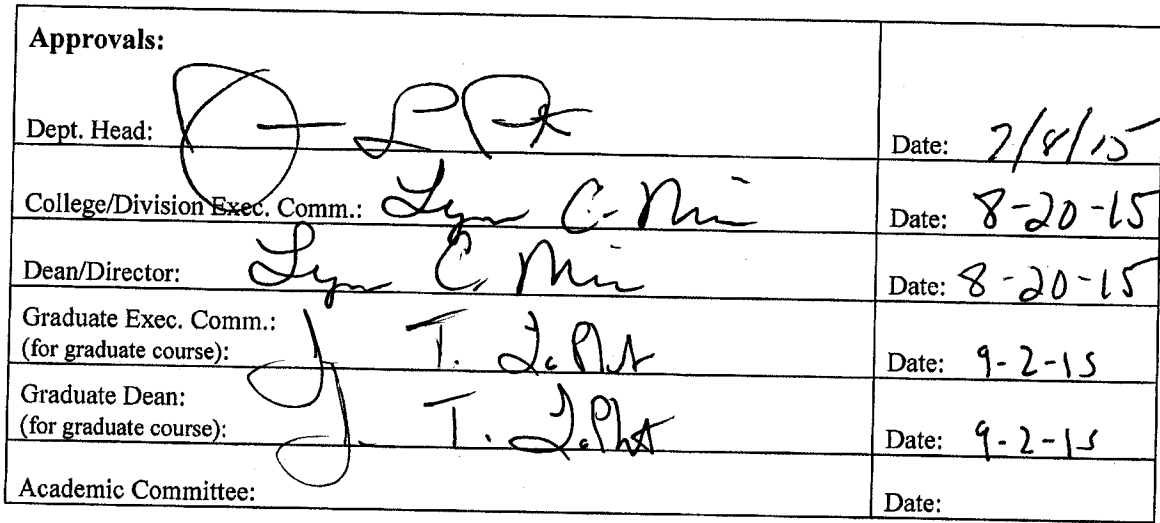 Approvals:
Dept. Head: Date: 7/8/15
College/Division Exec. Comm.: Lynn C. Date: 8-20-15
Dean/Director: Lynn C. Date: 8-20-15
Graduate Exec. Comm.:
(for graduate course): J. T. Date: 9-2-15
Graduate Dean:
(for graduate course): J. T. Date: 9-2-15
Academic Committee: Date: